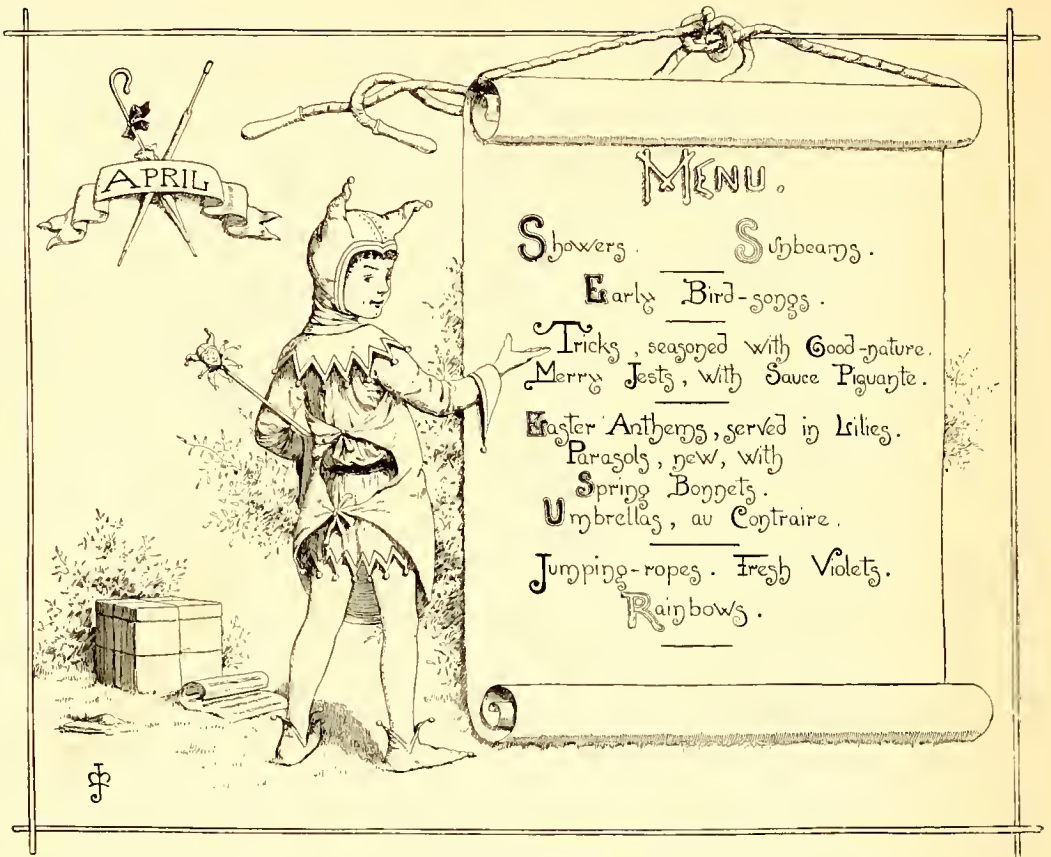 APRIL
MENU.
Showers. Sunbeams.
Early Bird-songs.
Tricks, seasoned with Good-nature.
Merry Jests, with Sauce Piquante.
Easter Anthems, served in Lilies.
Parasols, new, with
Spring Bonnets.
Umbrellas, au Contraire.
Jumping-ropes. Fresh Violets.
Rainbows.